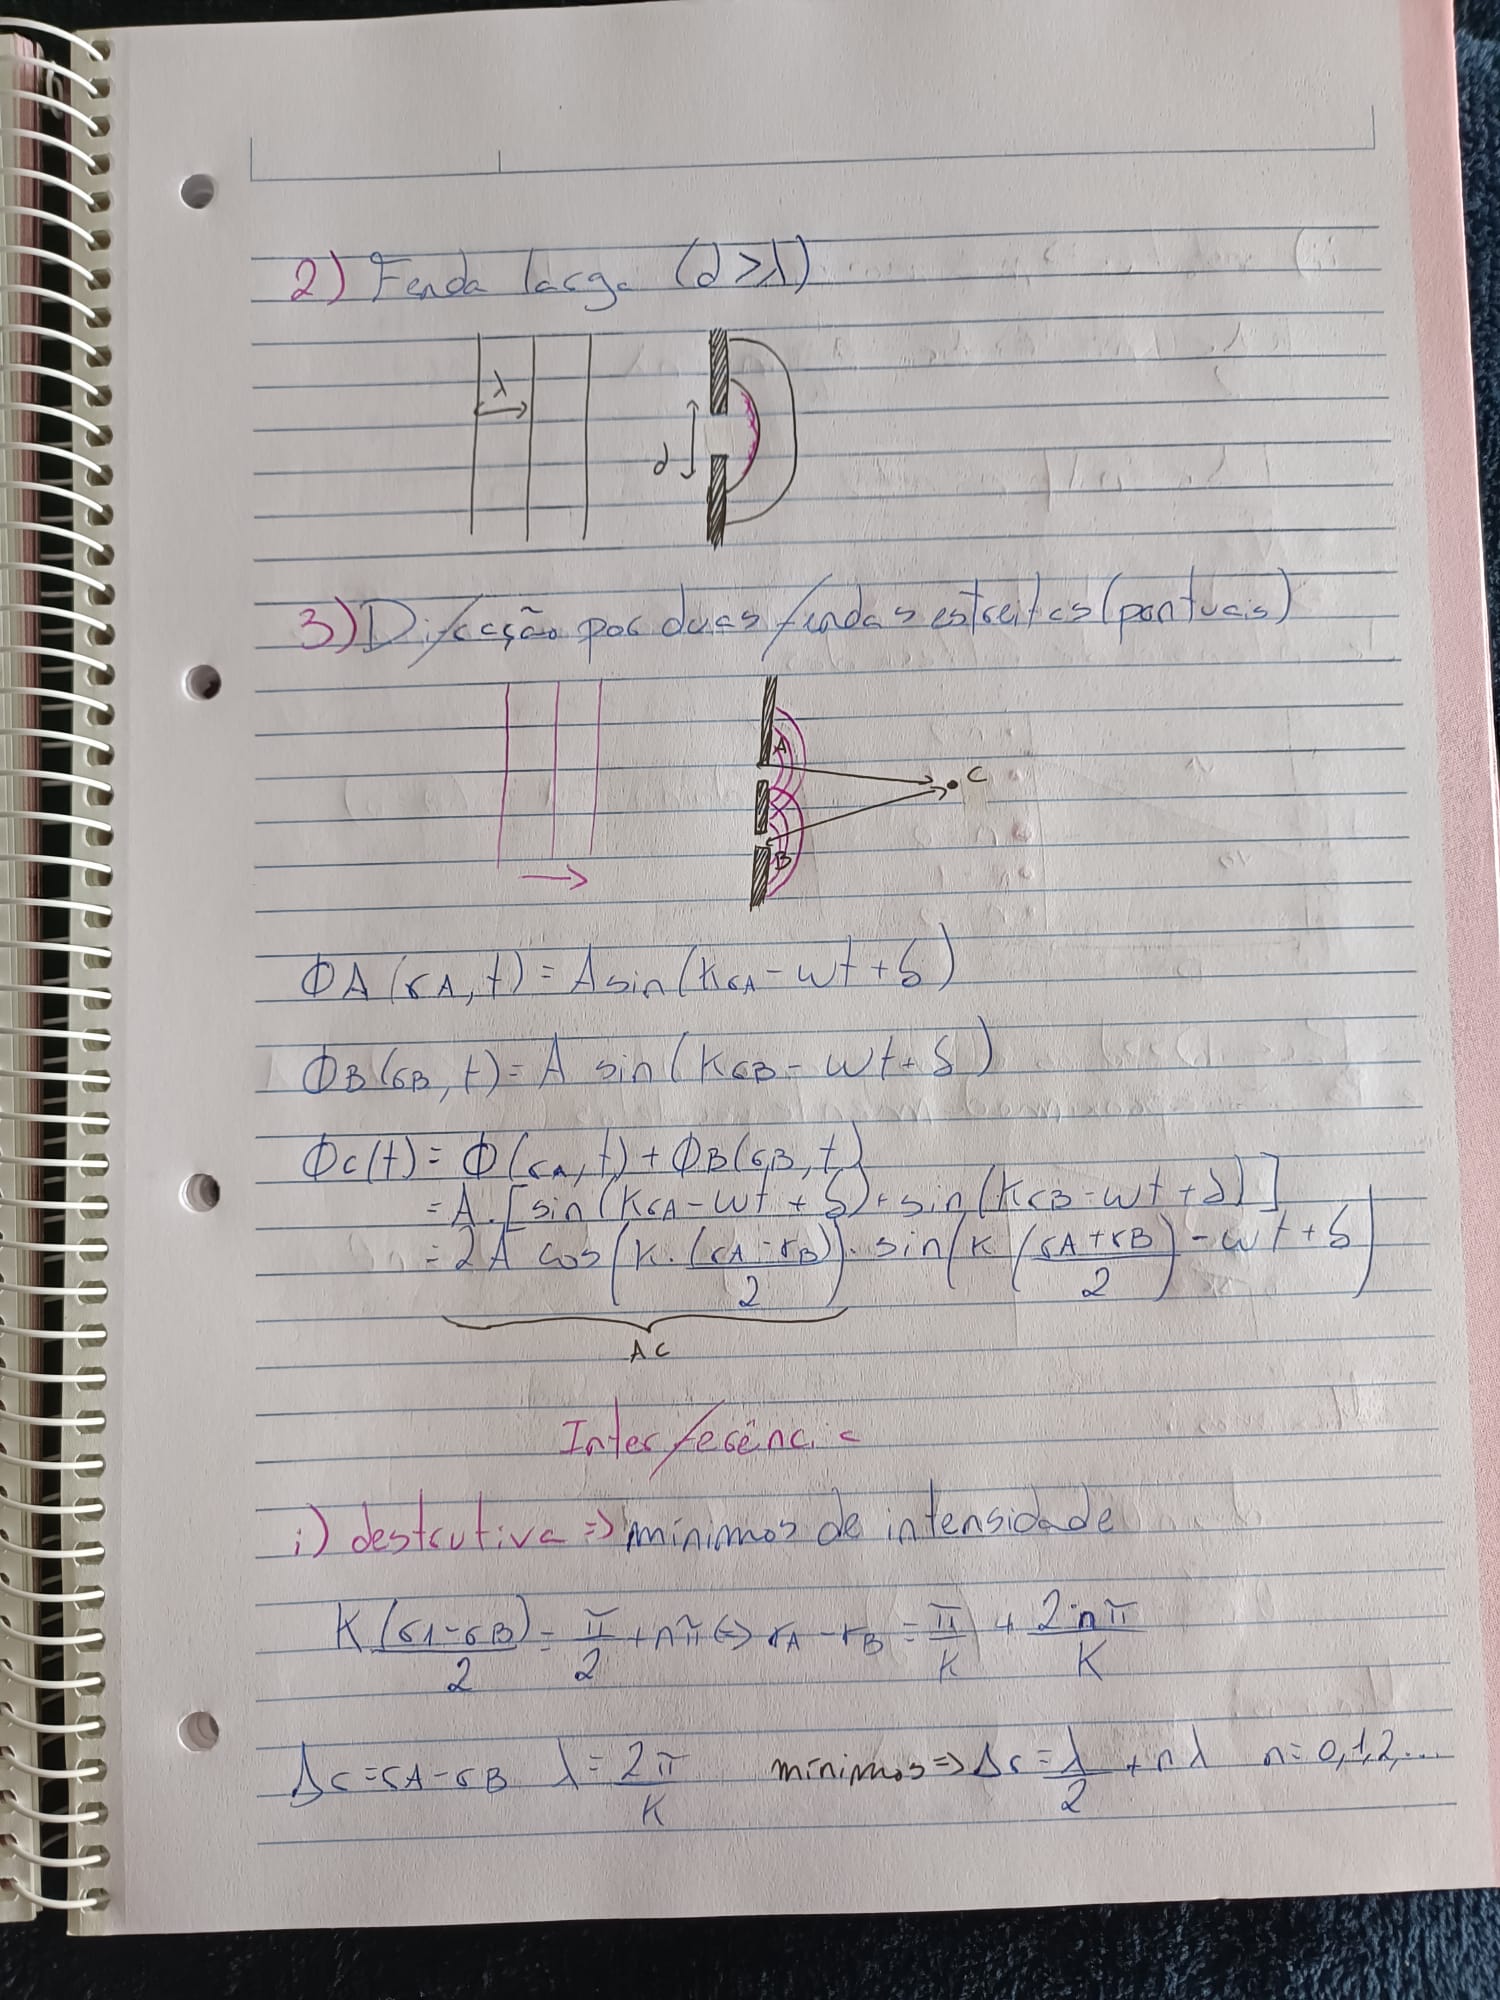 2) Fenda larga (d>λ)
λ
d
3) Difração por duas fendas estreitas (pontuais)
A
C
B
ΦA(rA,t) = A sin(KrA - wt + δ)
ΦB(rB,t) = A sin(KrB - wt + δ)
Φc(t) = Φ(rA,t) + ΦB(rB,t)
= A.[sin(KrA - wt + δ) + sin(KrB - wt + δ)]
= 2A cos(K.(rA - rB)/2). sin(K(rA + rB)/2 - wt + δ)
AC
Interferência
i) destrutiva => mínimos de intensidade
K(rA-rB)/2 = π/2 + nπ <=> rA - rB = π/K + 2nπ/K
Δr = rA - rB λ = 2π/K mínimos => Δr = λ/2 + nλ n = 0,1,2,...